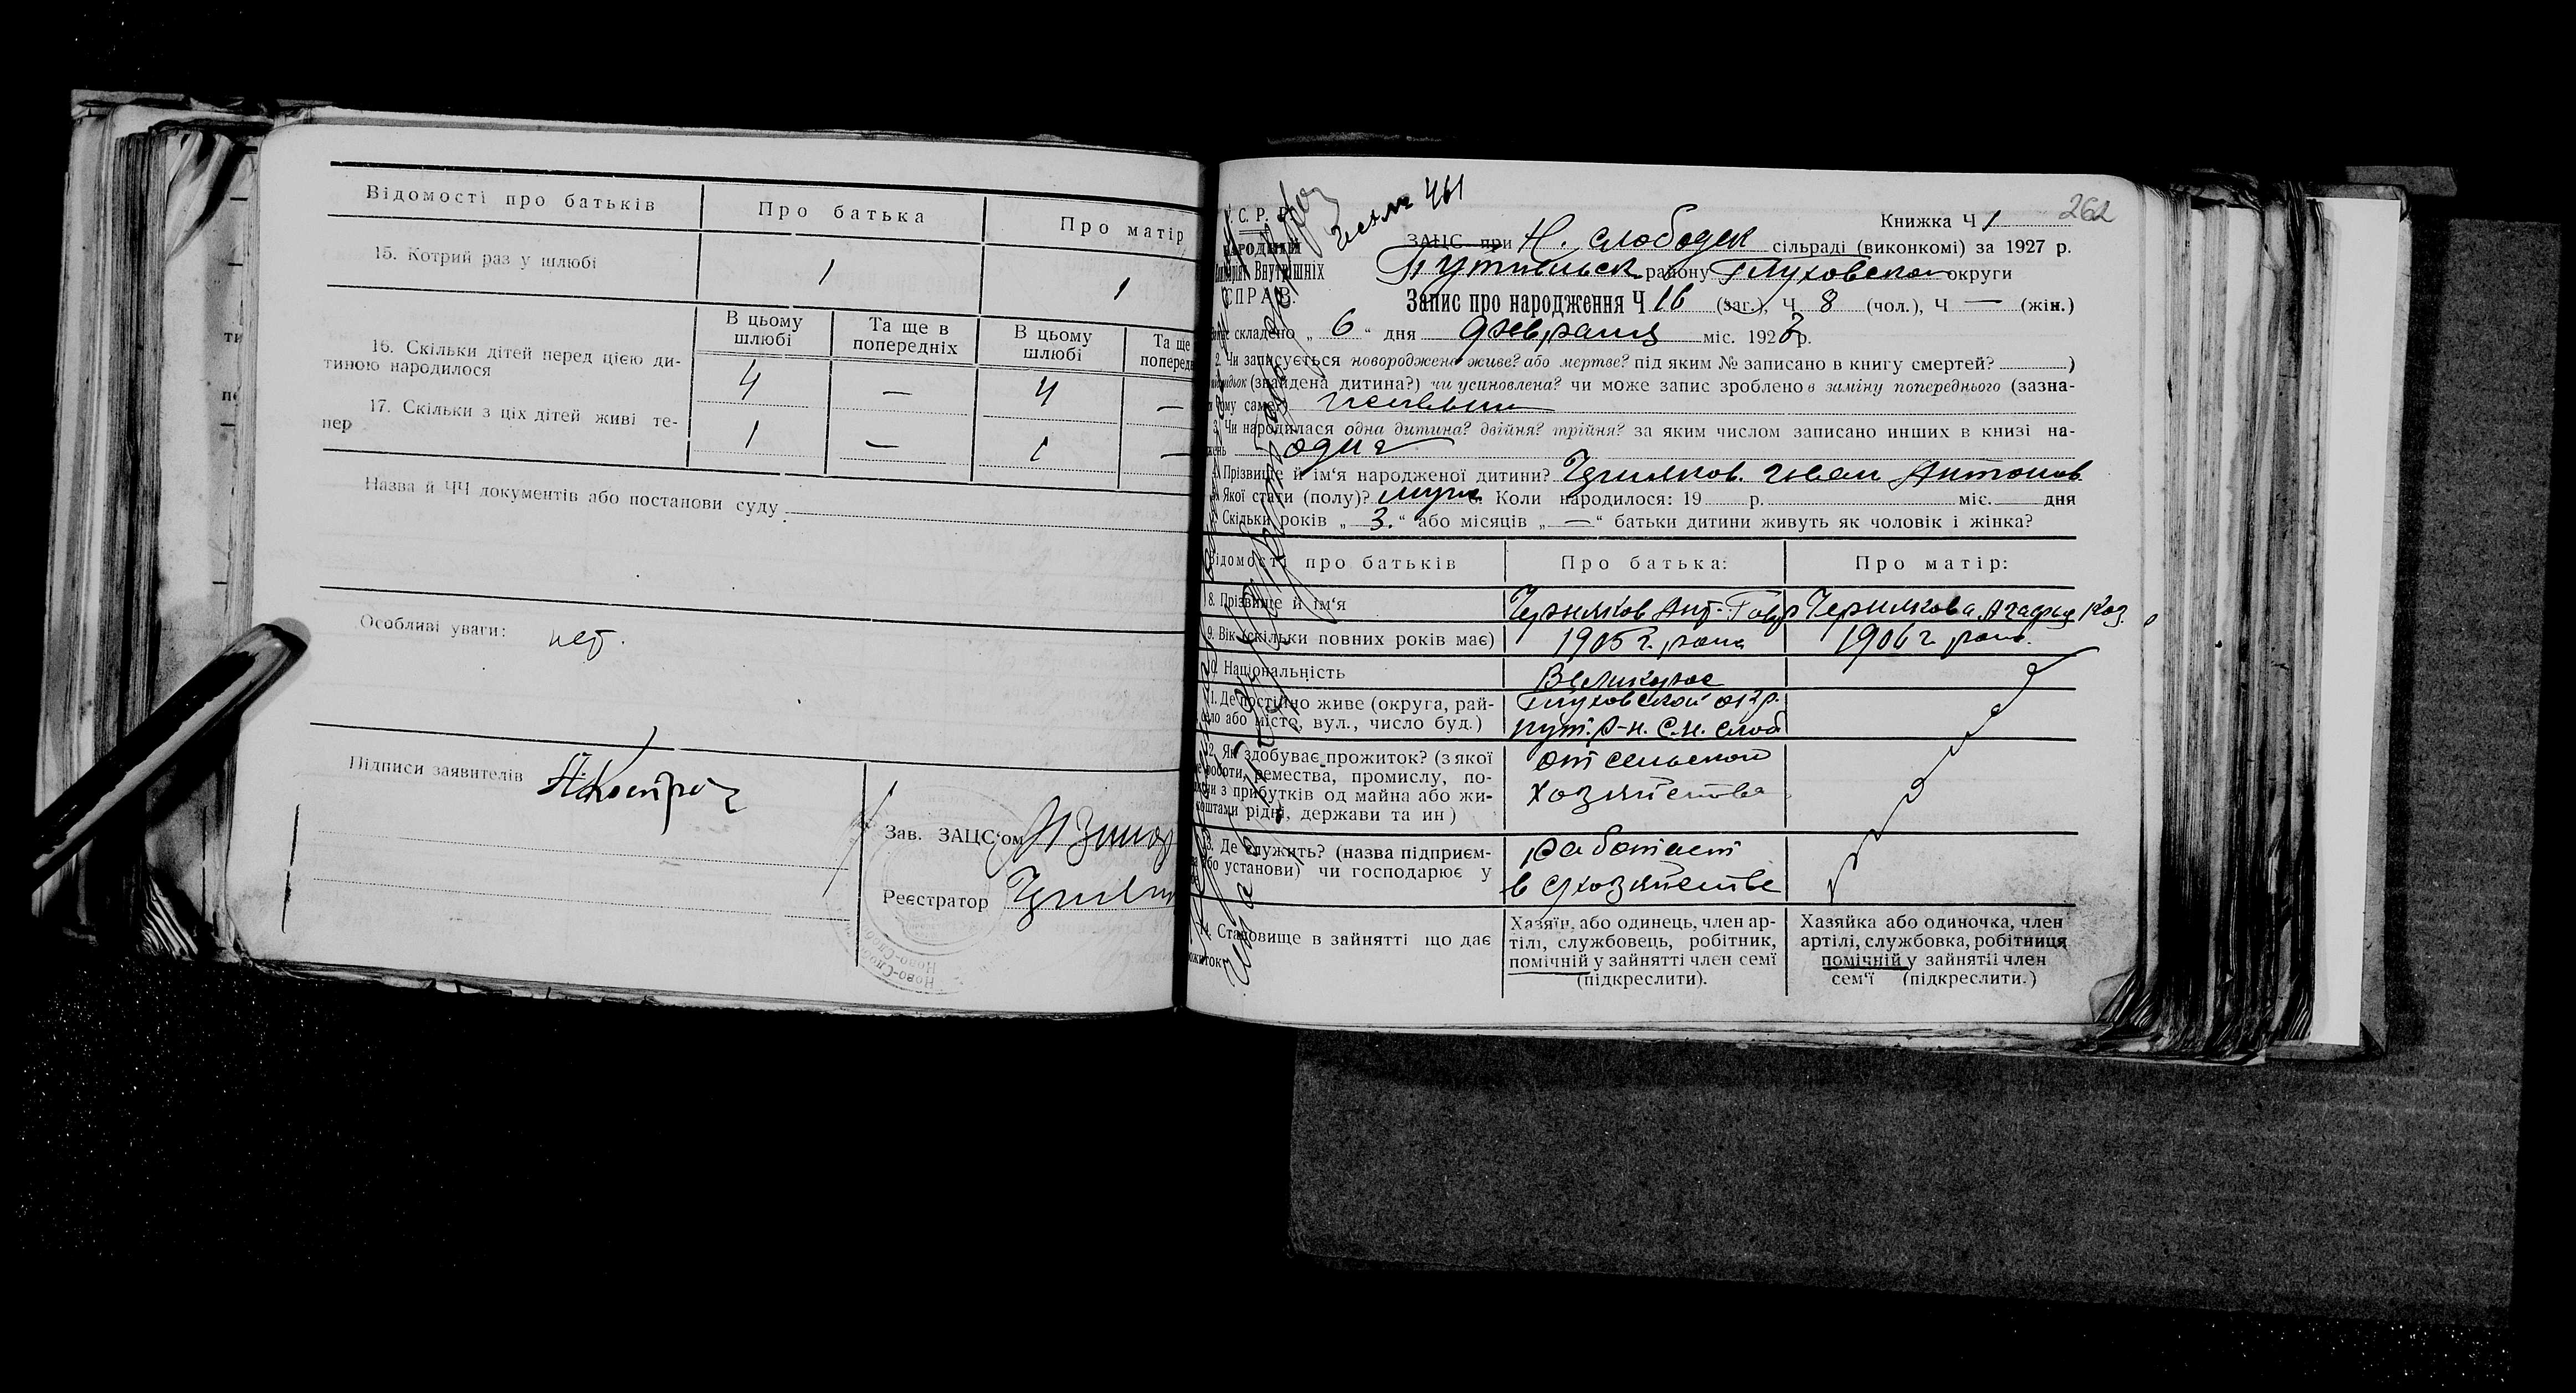 Відомості про батьків
Про батька
Про матір
15. Котрий раз у шлюбі
1
1
В цьому шлюбі
Та ще в попередніх
В цьому шлюбі
Та ще
16. Скільки дітей перед цією ди-
тиною народилося
4
—
4
—
17. Скільки з ціх дітей живі те-
пер
1
—
1
—
Назва й ЧЧ документів або постанови суду
Особливі уваги: нет.
Підписи заявителів
Зав. ЗАЦС‘ом
Реєстратор
262
Книжка Ч 1
С. Р. Р.
ЗАЦС при Н. Слободск сільраді (виконкомі) за 1927 р.
Внутрішніх
Путивльск району Глуховской округи
СПРАВ.
Запис про народження Ч 16 (заг.), Ч 8 (чол.), Ч — (жін.)
складено „ 6 “ дня февраля міс. 1928 р.
2. Чи записується новороджене живе? або мертве? під яким № записано в книгу смертей? )
(знайдена дитина?) чи усиновлена? чи може запис зроблено в заміну попереднього (зазна-
саме?)
3. Чи народилася одна дитина? двійня? трійня? за яким числом записано инших в книзі на-
один
Прізвище й ім‘я народженої дитини? Черняков Иван Антонов
Якої стати (полу)? муж. 6. Коли народилося: 19 р. міс. дня
Скільки років „ 3. “ або місяців „ — “ батьки дитини живуть як чоловік і жінка?
Відомості про батьків
Про батька:
Про матір:
8. Прізвище й ім‘я
Черняков Ант. Гавр
Чернякова Агафья Коз.
9. Вік (скільки повних років має)
1905 г. рожд
1906 г рож.
10. Національність
Великорос
11. Де постійно живе (округа, рай-
або місто, вул., число буд.)
Глуховской окр.
пут. р-н. с. н. слоб
12. Як здобуває прожиток? (з якої
роботи, ремества, промислу, по-
з прибутків од майна або жи-
коштами рідні, держави та ин)
от сельского
хозяйства
13. Де служить? (назва підприєм-
або установи) чи господарює у
работает
в с/хозяйстве
14. Становище в зайнятті що дає
Хазяїн, або одинець, член ар-
тілі, службовець, робітник,
помічній у зайнятті член семї
(підкреслити).
Хазяйка або одиночка, член
артілі, службовка, робітниця
помічній у зайнятії член
сем‘ї (підкреслити.)